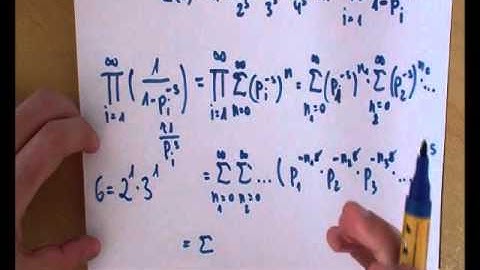 2^s 3^s 4^s i=1 1-P_i
∏_{i=1}^{∞} (1/(1-p_i^{-s})) = ∏_{i=1}^{∞} ∑_{n=0}^{∞} (p_i^{-s})^n = ∑_{n_1=0}^{∞} (p_1^{-s})^{n_1} · ∑_{n_2=0}^{∞} (p_2^{-s})^{n_2} ...
6 = 2^1 · 3^1 = ∑_{n_1=0}^{∞} ∑_{n_2=0}^{∞} ... (p_1^{-n_1} · p_2^{-n_2} · p_3^{-n_3} · ... s
= ∑